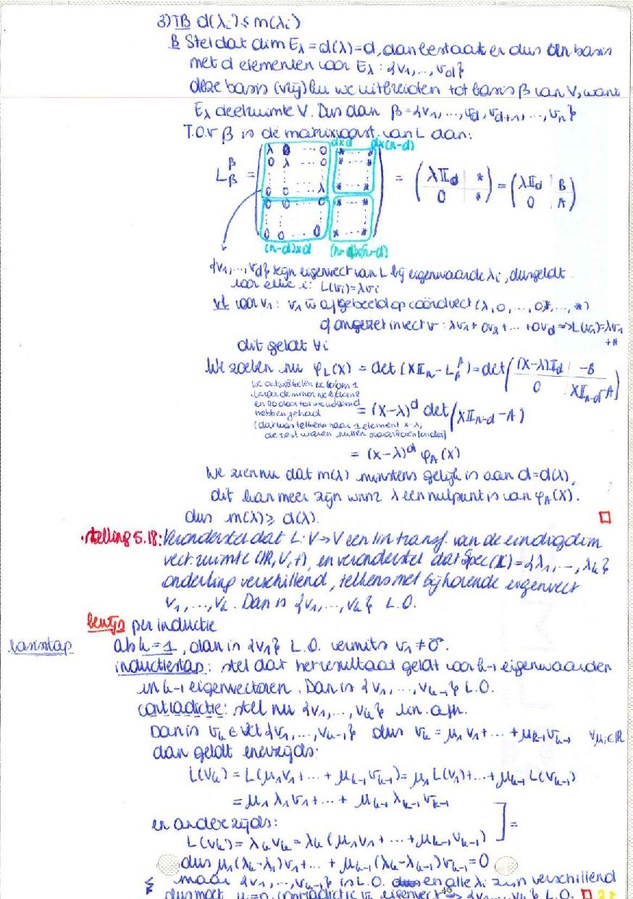 3) TB d(λi) ≤ m(λi)
B Stel dat dim Eλ = d(λ) = d, dan bestaat er dus een basis
met d elementen voor Eλ: {v1, ..., vd}
deze basis (vrij) kn we uitbreiden tot basis β van V, want
Eλ deelruimte V. Dus dan β = {v1, ..., vd, vd+1, ..., vn}
T.o.v β is de matrixvoorst. van L dan:
d×d d×(n-d)
L_β^β = (λ 0 ... 0 * ... * 0 λ ... 0 ... λ 0 0 ... 0 * ... *) = (λ𝕀d | * 0 | *) = (λ𝕀d | B 0 | A)
(n-d)×d (n-d)×(n-d)
{v1, ..., vd} zijn eigenvect van L bij eigenwaarde λi, dus geldt
voor elke i: L(vi) = λvi
vb voor v1: v1 w afgebeeld op coördvect (λ, 0, ..., 0*, ..., *)
of omgezet in vect v: λv1 + 0v2 + ... + 0vd => L(v1) = λv1
+*
dit geldt ∀i
We zoeken nu φL(X) = det(X𝕀n - L_β^β) = det((X-λ)𝕀d | -B 0 | X𝕀n-d - A)
we ontwikkelen
= (X-λ)^d det(X𝕀n-d - A)
= (X-λ)^d φA(X)
We zien nu dat m(λ) minstens gelijk is aan d = d(λ),
dit kan meer zijn wnr λ een nulpunt is van φA(X).
dus m(λ) ≥ d(λ). □
• stelling 5.18: Veronderstel dat L: V → V een lin transf. van de eindigdim
vect. ruimte (ℝ, V, +), en veronderstel dat Spec(L) = {λ1, ..., λk}
onderling verschillend, telkens met bijhorende eigenvect
v1, ..., vk. Dan is {v1, ..., vk} L.O.
bewijs per inductie
basisstap als k = 1, dan is {v1} L.O. vermits v1 ≠ 0.
inductiestap: stel dat het resultaat geldt voor k-1 eigenwaarden
en k-1 eigenvectoren. Dan is {v1, ..., vk-1} L.O.
contradictie: stel nu {v1, ..., vk} lin. afh.
Dan is vk ∈ vct{v1, ..., vk-1} dus vk = μ1v1 + ... + μk-1vk-1 ∀μi ∈ ℝ
dan geldt enerzijds:
L(vk) = L(μ1v1 + ... + μk-1vk-1) = μ1L(v1) + ... + μk-1L(vk-1)
= μ1λ1v1 + ... + μk-1λk-1vk-1
en anderzijds: ] =
L(vk) = λkvk = λk(μ1v1 + ... + μk-1vk-1)
dus μ1(λk-λ1)v1 + ... + μk-1(λk-λk-1)vk-1 = 0
maar {v1, ..., vk-1} is L.O. en alle λi zijn verschillend
dus moet μi=0, contradictie vk eigenvect => {v1, ..., vk} L.O. □